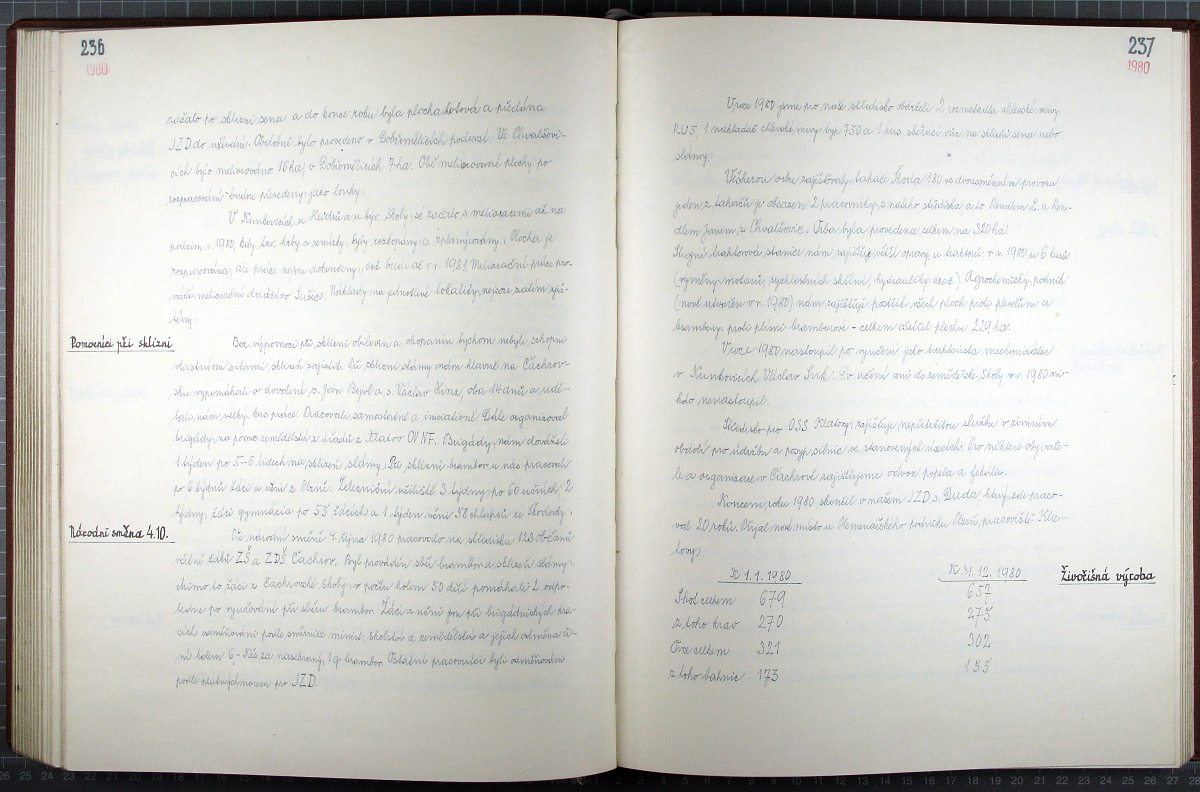 236
1980
začalo po sklizni sena a do konce roku byla plocha hotová a předána
JZD do užívání. Obdobně bylo provedeno v Dobřeměřicích podlesí. Ve Chvalšovi-
cích bylo meliorováno 16 ha, v Dobřeměřicích 7 ha. Obě meliorované plochy po
rozpracování budou převedeny jako louky.
V Kunkovicích u Hvdrů a u býv. školy, se začalo s melioracemi až na
podzim r. 1980, kdy tzv. hrby a remízky, byly rozhrnovány a zplanýrovány. Plocha je
rozpracována, ale práce nejsou dokončeny, což bude až v r. 1981. Meliorační práce pro-
vádí meliorační družstvo Sušice. Náklady na jednotlivé lokality, nejsou zatím zjiš-
těny.
Pomocníci při sklizni
Bez výpomoci při sklizni obilovin a okopanin bychom nebyli schopni
vlastními silami sklizeň zajistit. Při sklizni slámy nám hlavně na Čachrov-
sku vypomáhali o dovolené s. Jan Beyvl a s. Václav Hinz, oba 14 dnů a udě-
lali nám velký kus práce. Pracovali samostatně a iniciativně. Dále organizoval
brigády, na pomoc zemědělství z úřadů z Klatov OV NF. Brigády, nám dováželi
1 týden po 5-6 lidech na sklizeň slámy. Při sklizni brambor u nás pracovali
po 6 týdnů žáci a učni z Plzně. Železniční učiliště 3 týdny, po 60 učních, 2
týdny, žáci gymnázia po 55 žácích a 1 týden učni 38 chlapců ze Škodovky.
Národní směna 4.10.
Při národní směně 4. října 1980 pracovalo na středisku 123 občanů
včetně žáků ZŠ a ZDŠ Čachrov. Byl prováděn sběr brambor a sklizeň slámy,
mimo to žáci z Čachrovské školy, v počtu kolem 50 dětí pomáhali 2 odpo-
ledne po vyučování při sběru brambor. Žáci a učni jsou při brigádnických pra-
cích odměňováni podle směrnice minist. školství a zemědělství a jejich odměna či-
ní kolem 6,- Kčs za nasebraný 1 q brambor. Ostatní pracovníci byli odměňováni
podle platných norem pro JZD.
237
1980
V roce 1980 jsme pro naše středisko obdrželi 2 rozmetadla chlévské mrvy,
RUS, 1 nakladač chlévské mrvy, typ 750 a 1 kus sběrací vůz na sklizeň sena nebo
slámy.
Veškerou orbu zajišťovaly, tahače Škoda 180 ve dvousměnném provozu
jeden z tahačů je obsazen 2 pracovníky, z našeho střediska a to Rendlem L. a Ren-
dlem Janem z Chvalšovic. Orba byla provedena celkem na 320 ha.
Strojní traktorová stanice nám zajišťuje větší opravy u traktorů v r. 1980 u 6 kusů
(výměny, motorů, rychlostních skříní, hydrauliky, apod.) Agrochemický, podnik
(nově utvořen v r. 1980) nám zajišťuje postřik všech ploch proti plevelům a
brambory, proti plísni bramborové - celkem ošetřil plochu 229 ha.
V roce 1980 nastoupil po vyučení jako traktorista mechanizátor
v Kunkovicích Václav Suk. Do učení ani do zemědělské školy v r. 1980 ni-
kdo nenastoupil.
Středisko pro OSS Klatovy, zajišťuje nepřetržitou službu v zimním
období pro údržbu a posyp silnic ve stanovených úsecích. Pro některé obyvate-
le a organizace v Čachrově zajišťujeme odvoz popela a fekálií.
Koncem roku 1980 skončil v našem JZD s. Duda který zde praco-
val 20 roků. Přijal nové místo u Kamenářského podniku Plzeň, pracoviště Kla-
tovy.
Živočišná výroba
K 1.1.1980 K 31.12.1980
Skot celkem 679 657
z toho krav 270 275
Ovce celkem 321 302
z toho bahnic 173 155